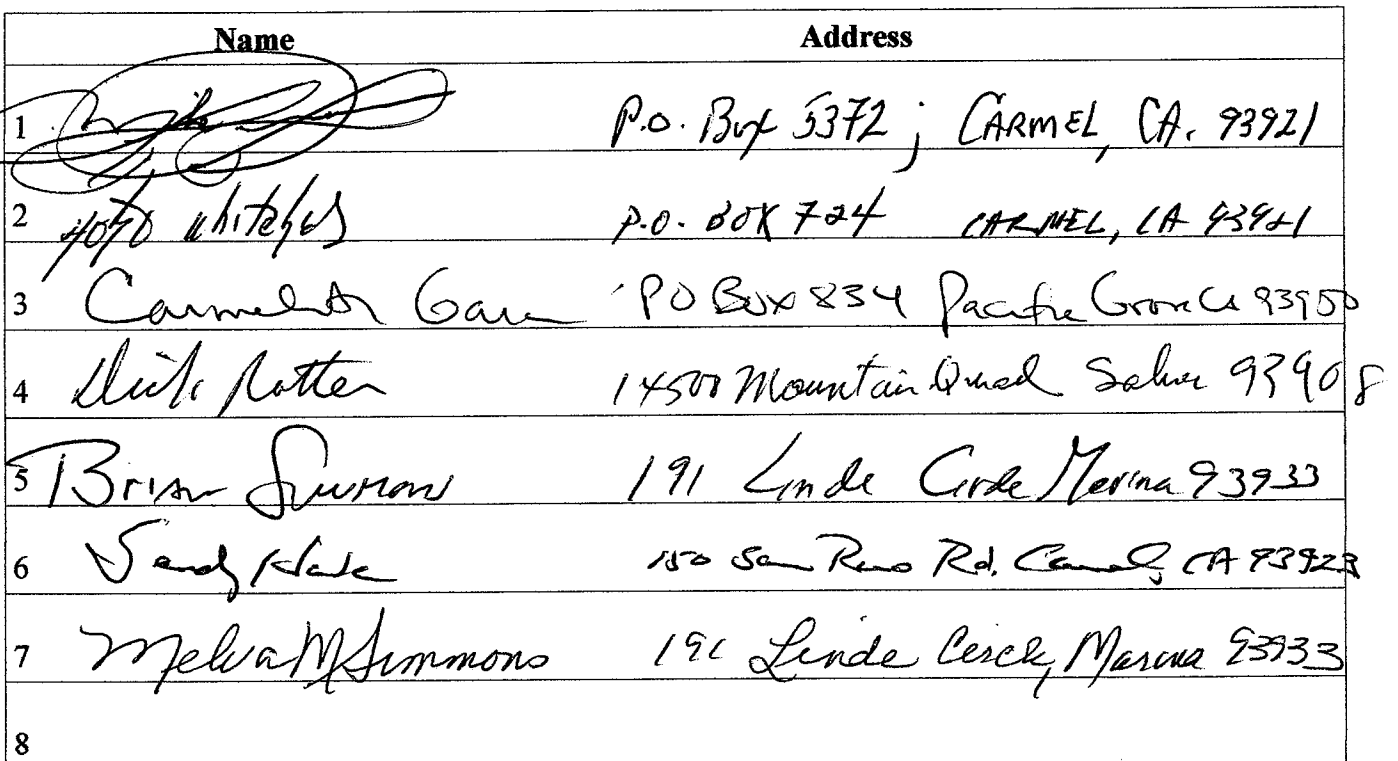 Name Address
1 P.O. Box 5372; CARMEL, CA. 93921
2 P.O. BOX 724 CARMEL, CA 93921
3 PO Box 834 Pacific Grove Ca 93950
4 Dick Rotter 14500 Mountain Quail 93908
5 Brian Simmons 191 Linde Circle Marina 93933
6 Sandy 150 San Remo Rd. Carmel, CA 93923
7 Melva M Simmons 191 Linde Circle, Marina 93933
8